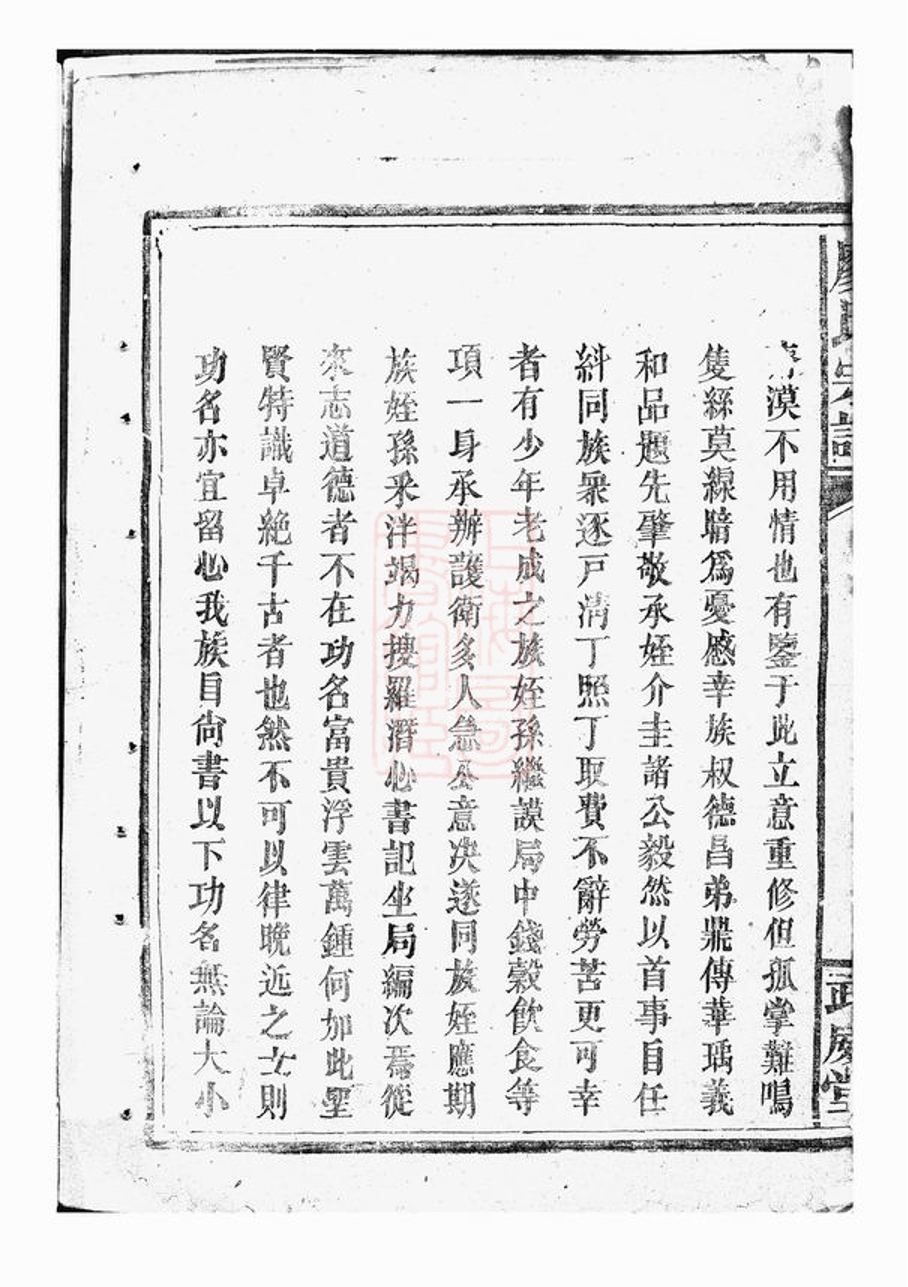 廖氏宗譜
武威堂
漠不用情也有鑒于此立意重修但孤掌難鳴
隻絲莫線暗爲憂慼幸族叔德昌弟鼎傳華瑀義
和品題先肇敬承姪介圭諸公毅然以首事自任
糾同族衆逐戸清丁照丁取費不辭勞苦更可幸
者有少年老成之族姪孫繼謨局中錢穀飲食等
項一身承辦護衛多人急公意决遂同族姪應期
族姪孫釆泮竭力搜羅潛心書記坐局編次焉從
來志道德者不在功名富貴浮雲萬鍾何加此聖
賢特識卓絶千古者也然不可以律晚近之士則
功名亦宜留心我族自尙書以下功名無論大小